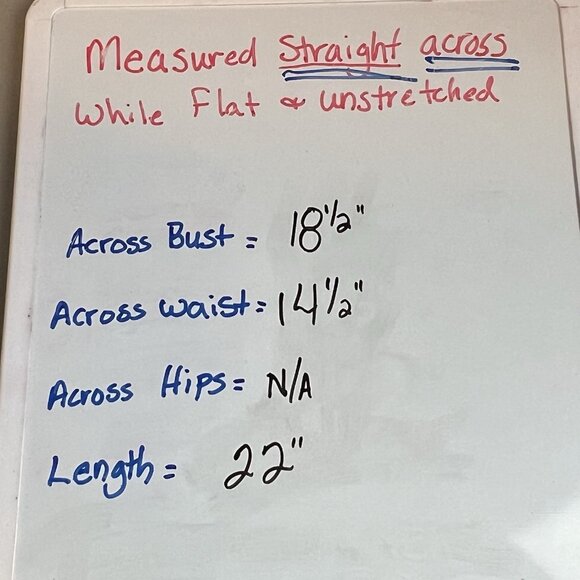 Measured Straight across
While Flat & unstretched
Across Bust = 18 1/2"
Across Waist = 14 1/2"
Across Hips = N/A
Length = 22"